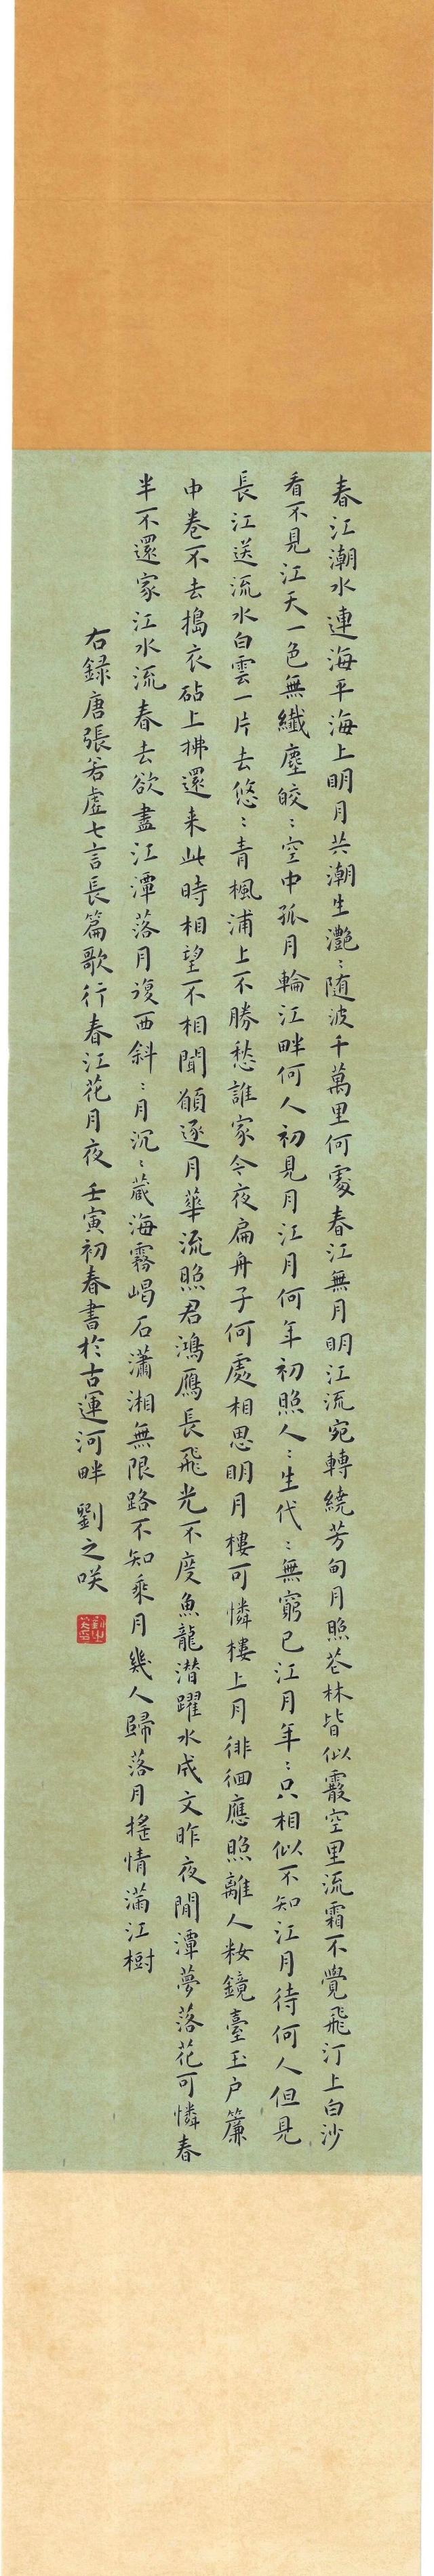 春江潮水連海平海上明月共潮生灔〻随波千萬里何處春江無月明江流宛轉繞芳甸月照花林皆似霰空里流霜不覺飛汀上白沙
看不見江天一色無纖塵皎〻空中孤月輪江畔何人初見月江月何年初照人〻生代〻無窮已江月年〻只相似不知江月待何人但見
長江送流水白雲一片去悠〻青楓浦上不勝愁誰家今夜扁舟子何處相思明月樓可憐樓上月徘徊應照離人妝鏡臺玉户簾
中卷不去搗衣砧上拂還来此時相望不相聞願逐月華流照君鴻雁長飛光不度魚龍潜躍水成文昨夜閒潭夢落花可憐春
半不還家江水流春去欲盡江潭落月復西斜〻月沉〻蔵海霧碣石瀟湘無限路不知乘月幾人歸落月搖情滿江樹
右録唐張若虚七言長篇歌行春江花月夜 壬寅初春書於古運河畔 劉之咲